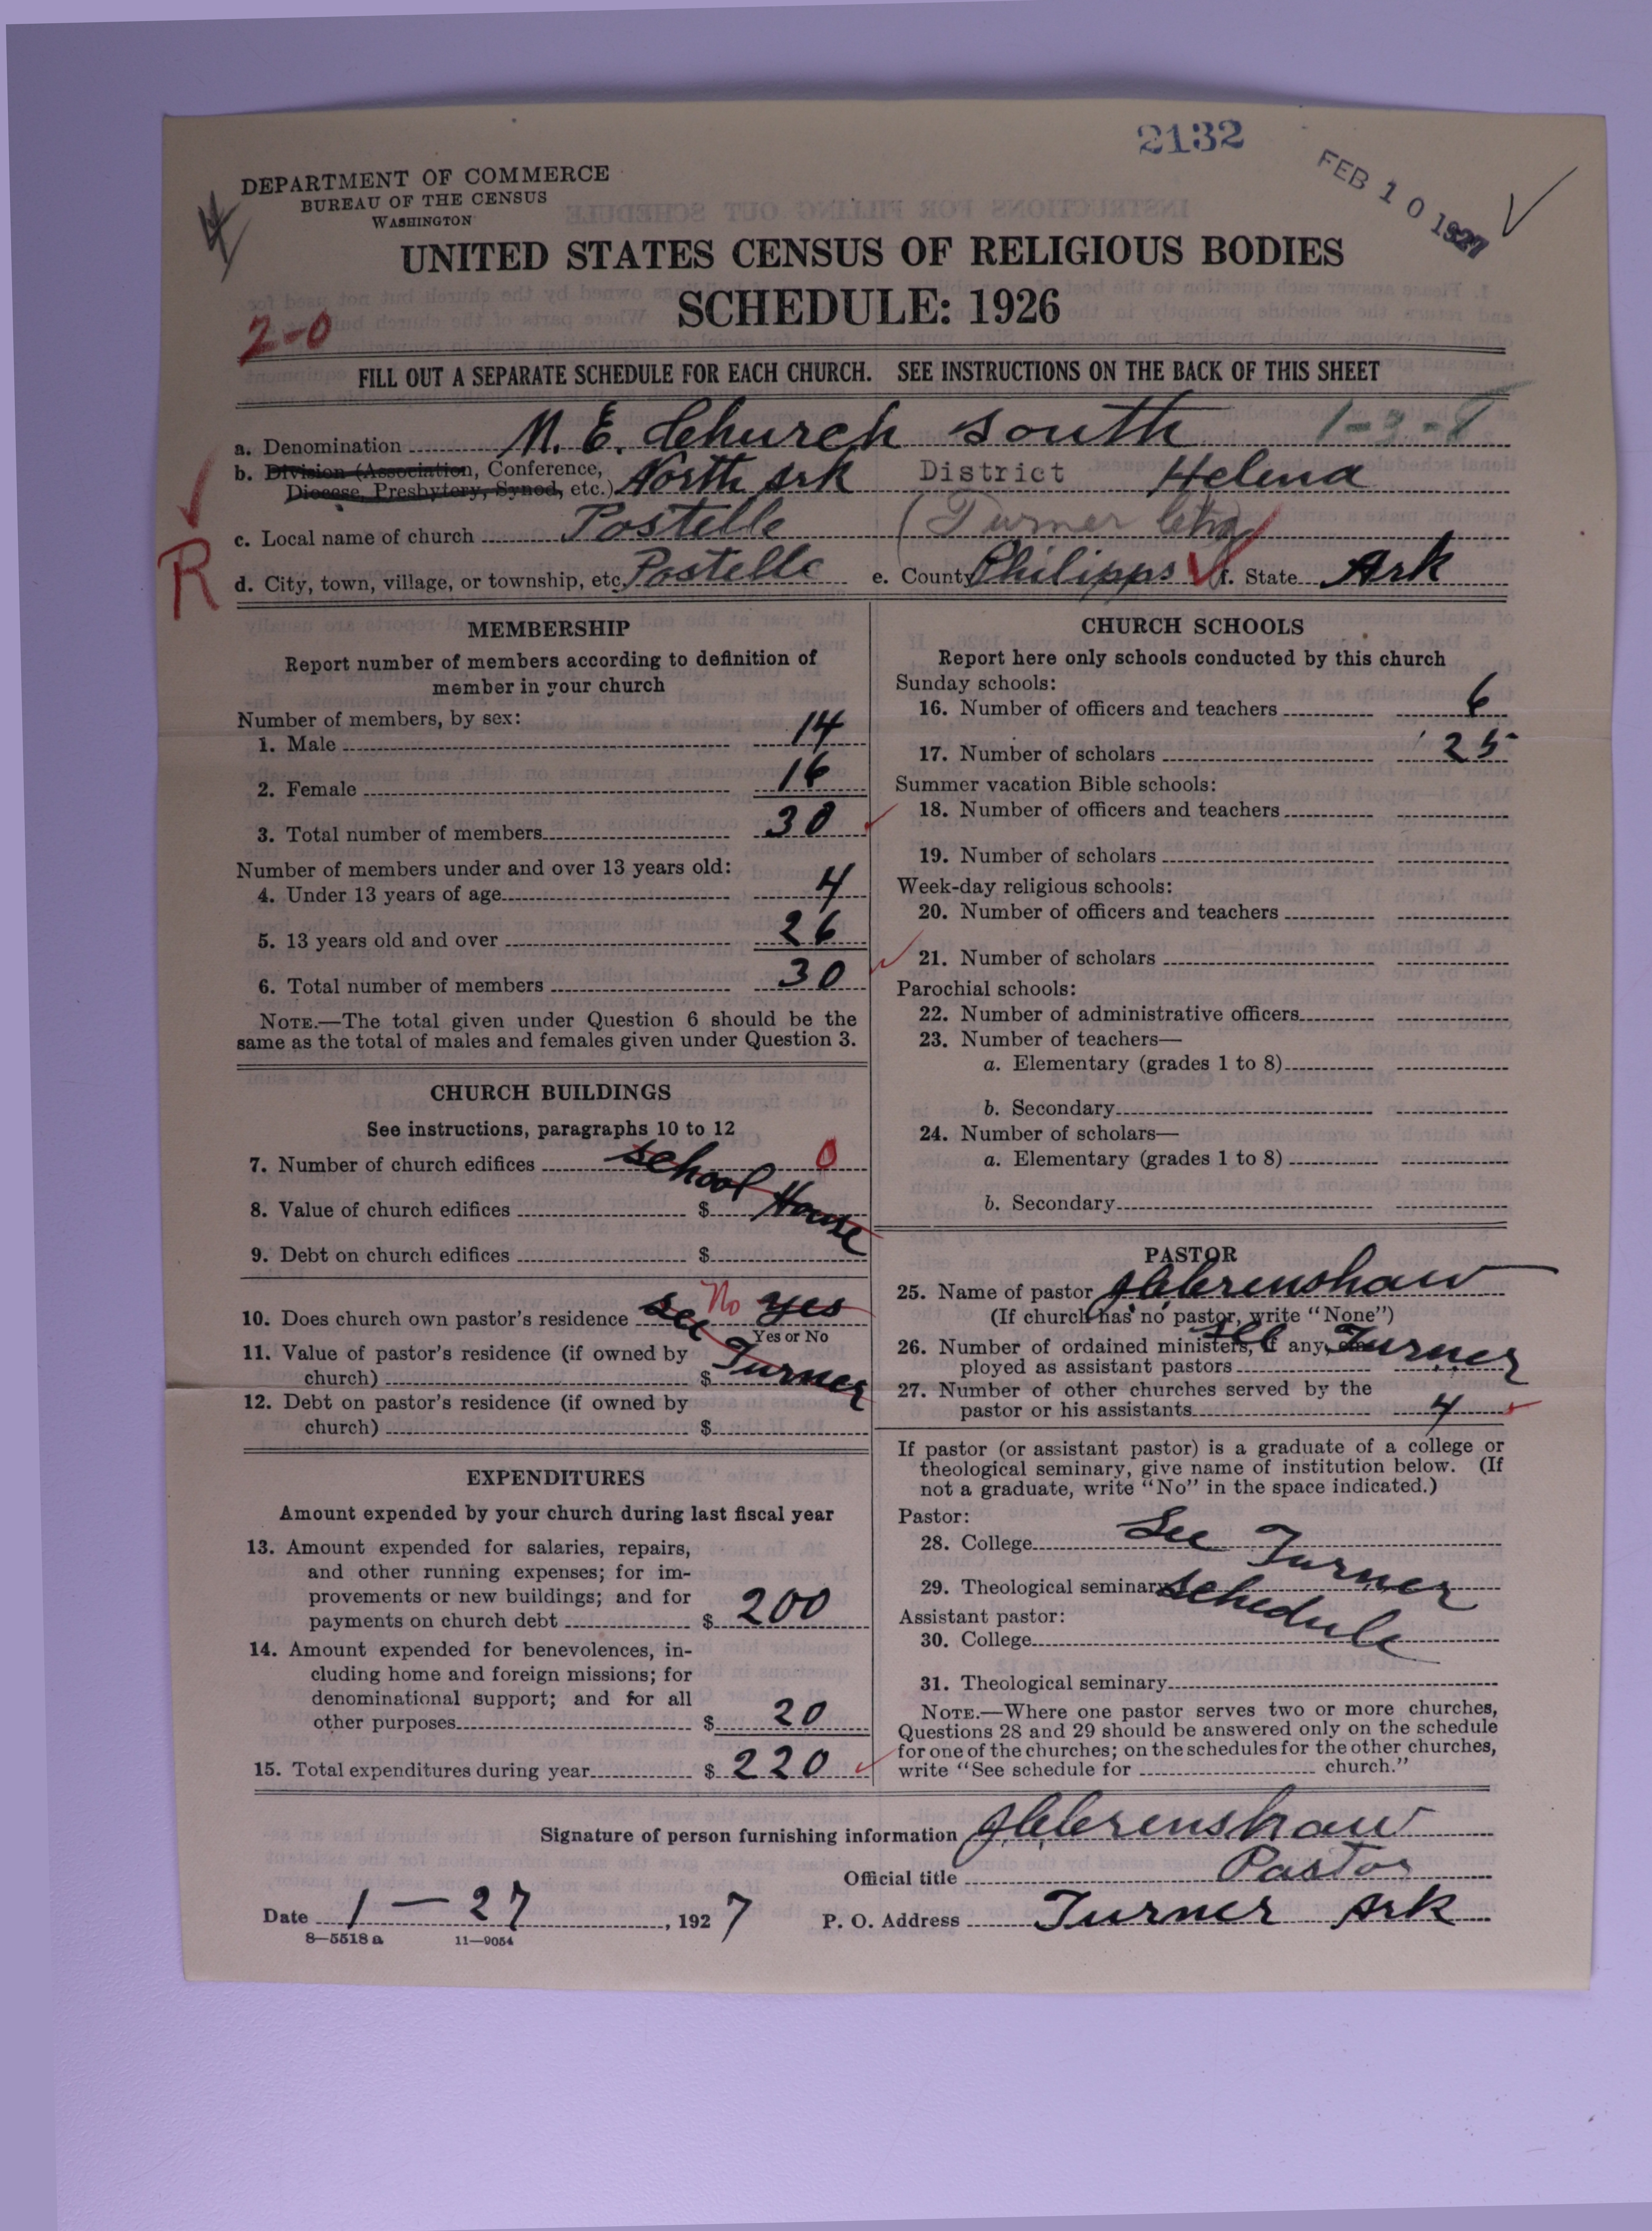 2132
FEB 10 1927
DEPARTMENT OF COMMERCE
BUREAU OF THE CENSUS
WASHINGTON
UNITED STATES CENSUS OF RELIGIOUS BODIES
SCHEDULE: 1926
2-0
FILL OUT A SEPARATE SCHEDULE FOR EACH CHURCH. SEE INSTRUCTIONS ON THE BACK OF THIS SHEET
a. Denomination M. E. Church South 1-3-8
b. Division (Association, Conference, North Ark District Helena
Diocese, Presbytery, Synod, etc.)
c. Local name of church Postelle (Turner
R
d. City, town, village, or township, etc. Postelle e. County Philipps f. State Ark
MEMBERSHIP
Report number of members according to definition of
member in your church
Number of members, by sex:
1. Male 14
2. Female 16
3. Total number of members 30
Number of members under and over 13 years old:
4. Under 13 years of age 4
5. 13 years old and over 26
6. Total number of members 30
NOTE.—The total given under Question 6 should be the
same as the total of males and females given under Question 3.
CHURCH BUILDINGS
See instructions, paragraphs 10 to 12
7. Number of church edifices school 0
8. Value of church edifices $ House
9. Debt on church edifices $
10. Does church own pastor's residence see No yes
Yes or No
11. Value of pastor's residence (if owned by
church) $ Turner
12. Debt on pastor's residence (if owned by
church) $
EXPENDITURES
Amount expended by your church during last fiscal year
13. Amount expended for salaries, repairs,
and other running expenses; for im-
provements or new buildings; and for
payments on church debt $ 200
14. Amount expended for benevolences, in-
cluding home and foreign missions; for
denominational support; and for all
other purposes $ 20
15. Total expenditures during year $ 220
CHURCH SCHOOLS
Report here only schools conducted by this church
Sunday schools:
16. Number of officers and teachers 6
17. Number of scholars 25
Summer vacation Bible schools:
18. Number of officers and teachers
19. Number of scholars
Week-day religious schools:
20. Number of officers and teachers
21. Number of scholars
Parochial schools:
22. Number of administrative officers
23. Number of teachers—
a. Elementary (grades 1 to 8)
b. Secondary
24. Number of scholars—
a. Elementary (grades 1 to 8)
b. Secondary
PASTOR
25. Name of pastor J.C. Crenshaw
(If church has no pastor, write "None")
26. Number of ordained ministers, if any, em- see Turner
ployed as assistant pastors
27. Number of other churches served by the
pastor or his assistants 4
If pastor (or assistant pastor) is a graduate of a college or
theological seminary, give name of institution below. (If
not a graduate, write "No" in the space indicated.)
Pastor:
28. College See Turner
29. Theological seminary schedule
Assistant pastor:
30. College
31. Theological seminary
NOTE.—Where one pastor serves two or more churches,
Questions 28 and 29 should be answered only on the schedule
for one of the churches; on the schedules for the other churches,
write "See schedule for church."
Signature of person furnishing information J.C. Crenshaw
Official title Pastor
Date 1-27, 1927 P. O. Address Turner Ark
8—5518 a 11—9054